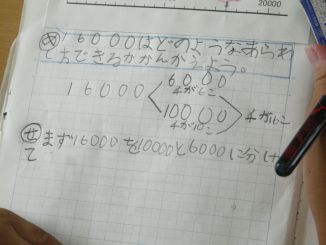 20000
め 16000はどのようなあらわし
てできるかかんがえよう。
6000
千が6こ
16000
10000
千が10こ
千が16こ
せ まず16000を10000と6000に分け
て